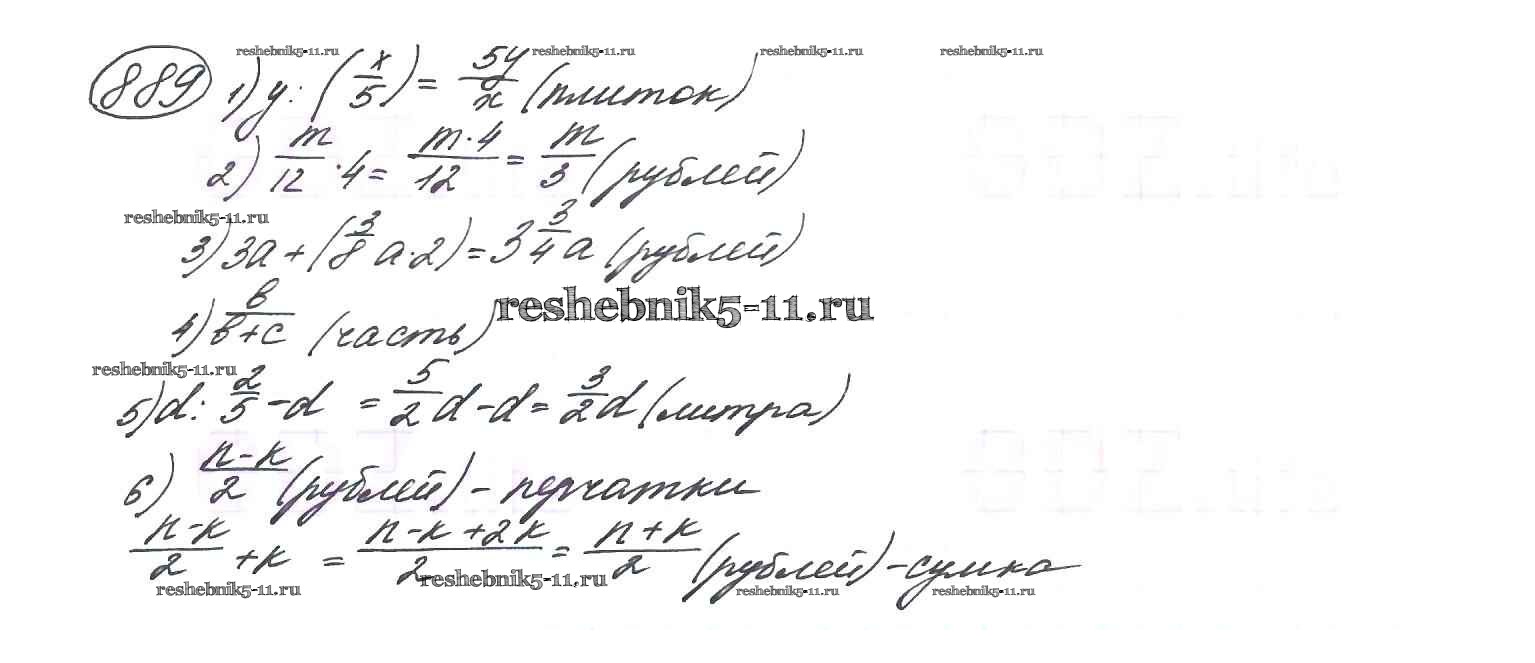 reshebnik5-11.ru reshebnik5-11.ru reshebnik5-11.ru reshebnik5-11.ru
889 1) y : (x/5) = 5y/x (плиток)
2) m/12 · 4 = m·4/12 = m/3 (рублей)
reshebnik5-11.ru
3) 3a + (3/8 a·2) = 3 3/4 a (рублей)
reshebnik5-11.ru
4) в/в+с (часть)
reshebnik5-11.ru
5) d : 2/5 - d = 5/2 d - d = 3/2 d (литра)
6) n-k/2 (рублей) - перчатки
n-k/2 + k = n-k+2k/2 = n+k/2 (рублей) - сумка
reshebnik5-11.ru reshebnik5-11.ru reshebnik5-11.ru reshebnik5-11.ru